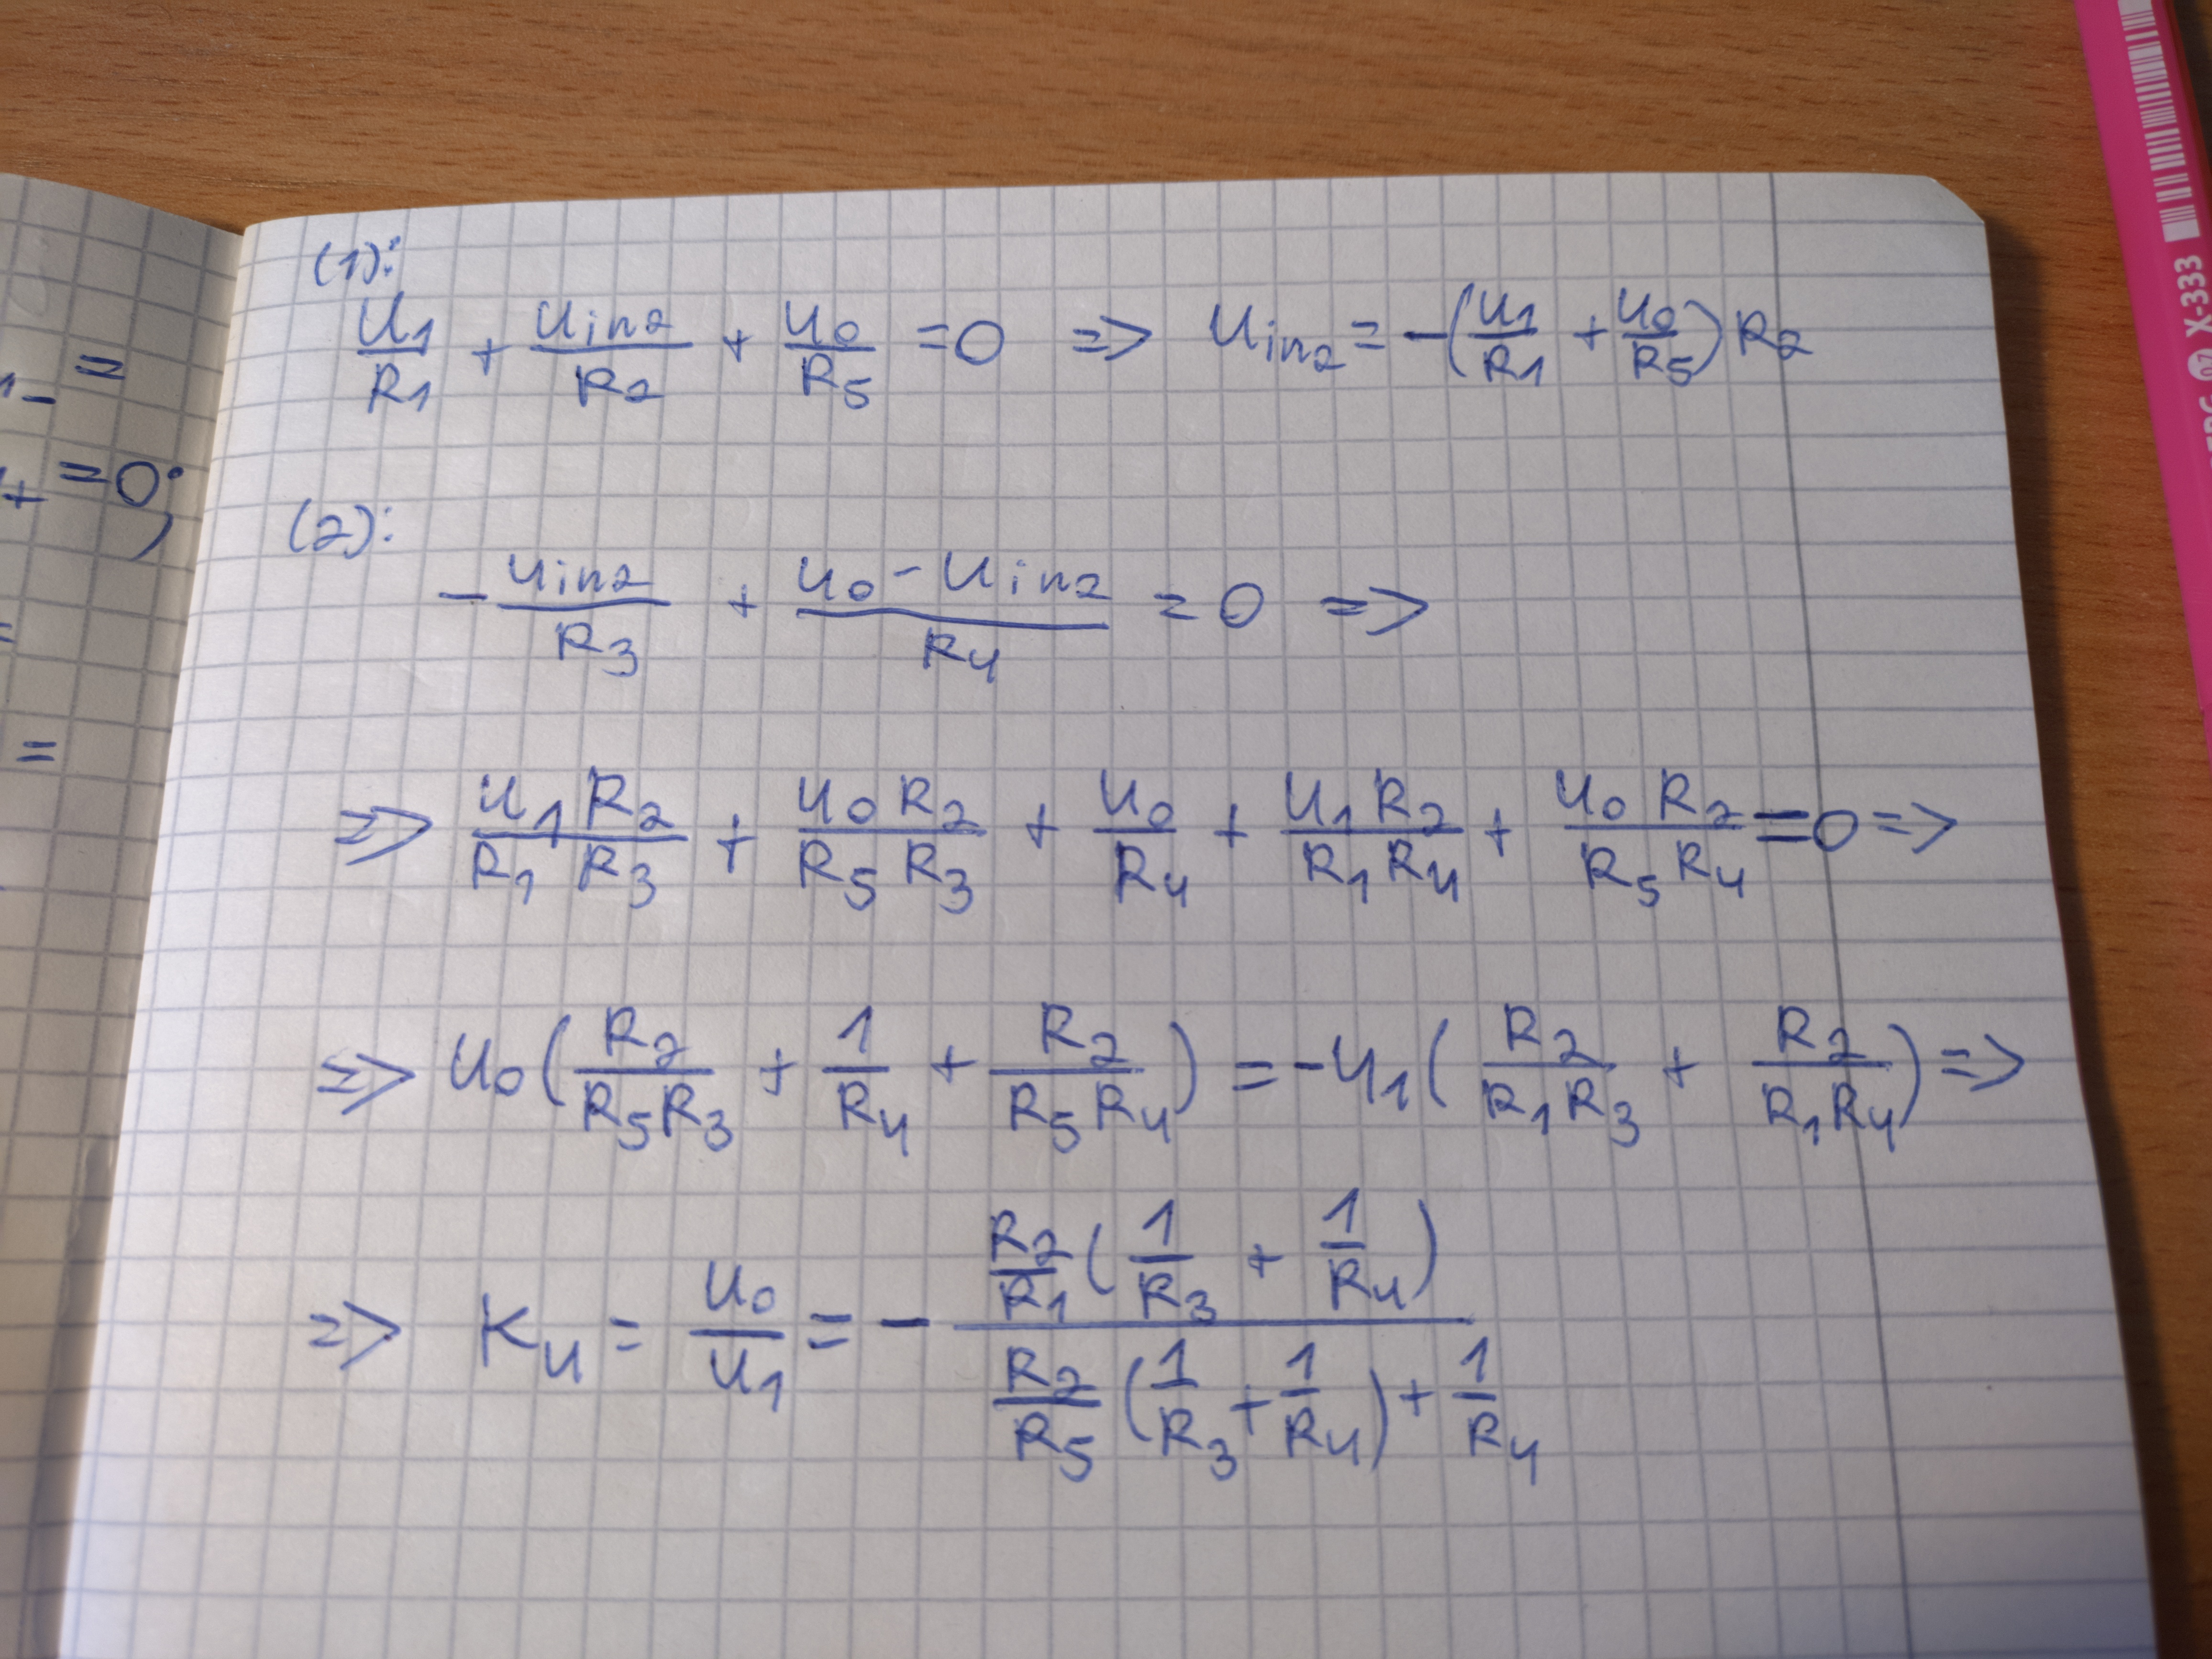 1- =
+ = 0;
=
=
(1):
U1/R1 + Uin2/R2 + U0/R5 = 0 => Uin2 = -(U1/R1 + U0/R5) R2
(2):
- Uin2/R3 + (U0 - Uin2)/R4 = 0 =>
=> U1 R2/(R1 R3) + U0 R2/(R5 R3) + U0/R4 + U1 R2/(R1 R4) + U0 R2/(R5 R4) = 0 =>
=> U0 (R2/(R5 R3) + 1/R4 + R2/(R5 R4)) = -U1 (R2/(R1 R3) + R2/(R1 R4)) =>
=> KU = U0/U1 = - (R2/R1 (1/R3 + 1/R4))/(R2/R5 (1/R3 + 1/R4) + 1/R4)
X-333